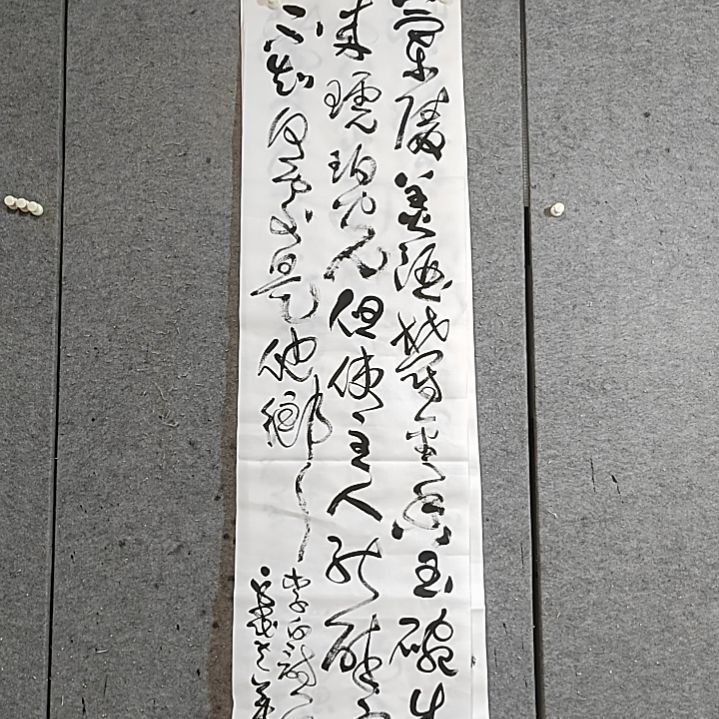 蘭陵美酒鬱金香玉碗盛
来琥珀光但使主人能醉客
不知何處是他鄉
李白詩